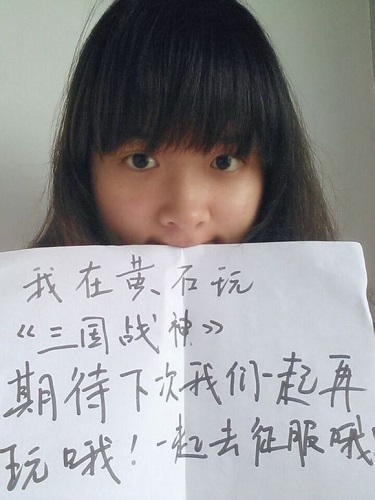 我在黄石玩
《三国战神》
期待下次我们一起再
玩哦!一起去征服哦!